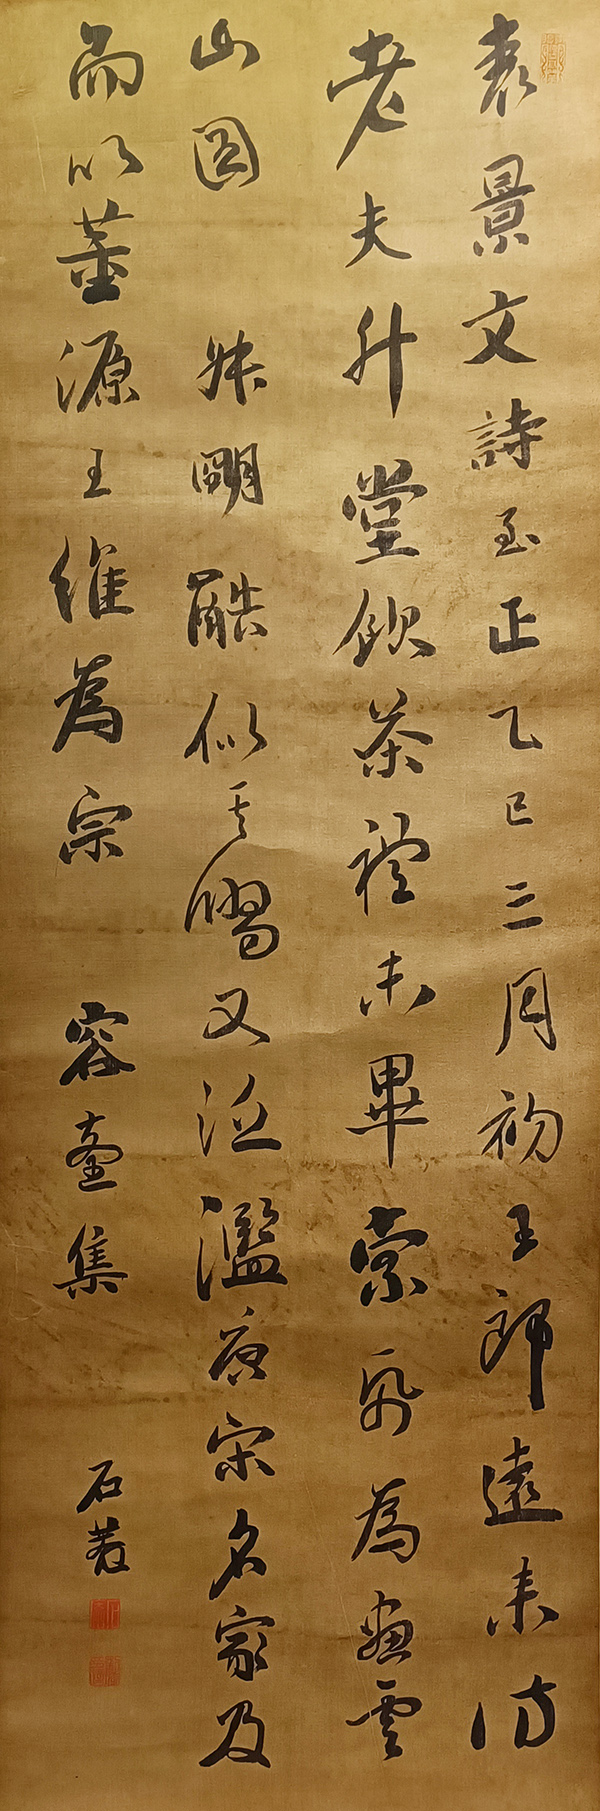 袁景文詩至正乙巳三月初王郎遠來訪
老夫升堂飲茶禮未畢索紙為畫雲
山圖 叔明酷似其賜又泛濫唐宋名家及
而以董源王維為宗 容臺集
石菴